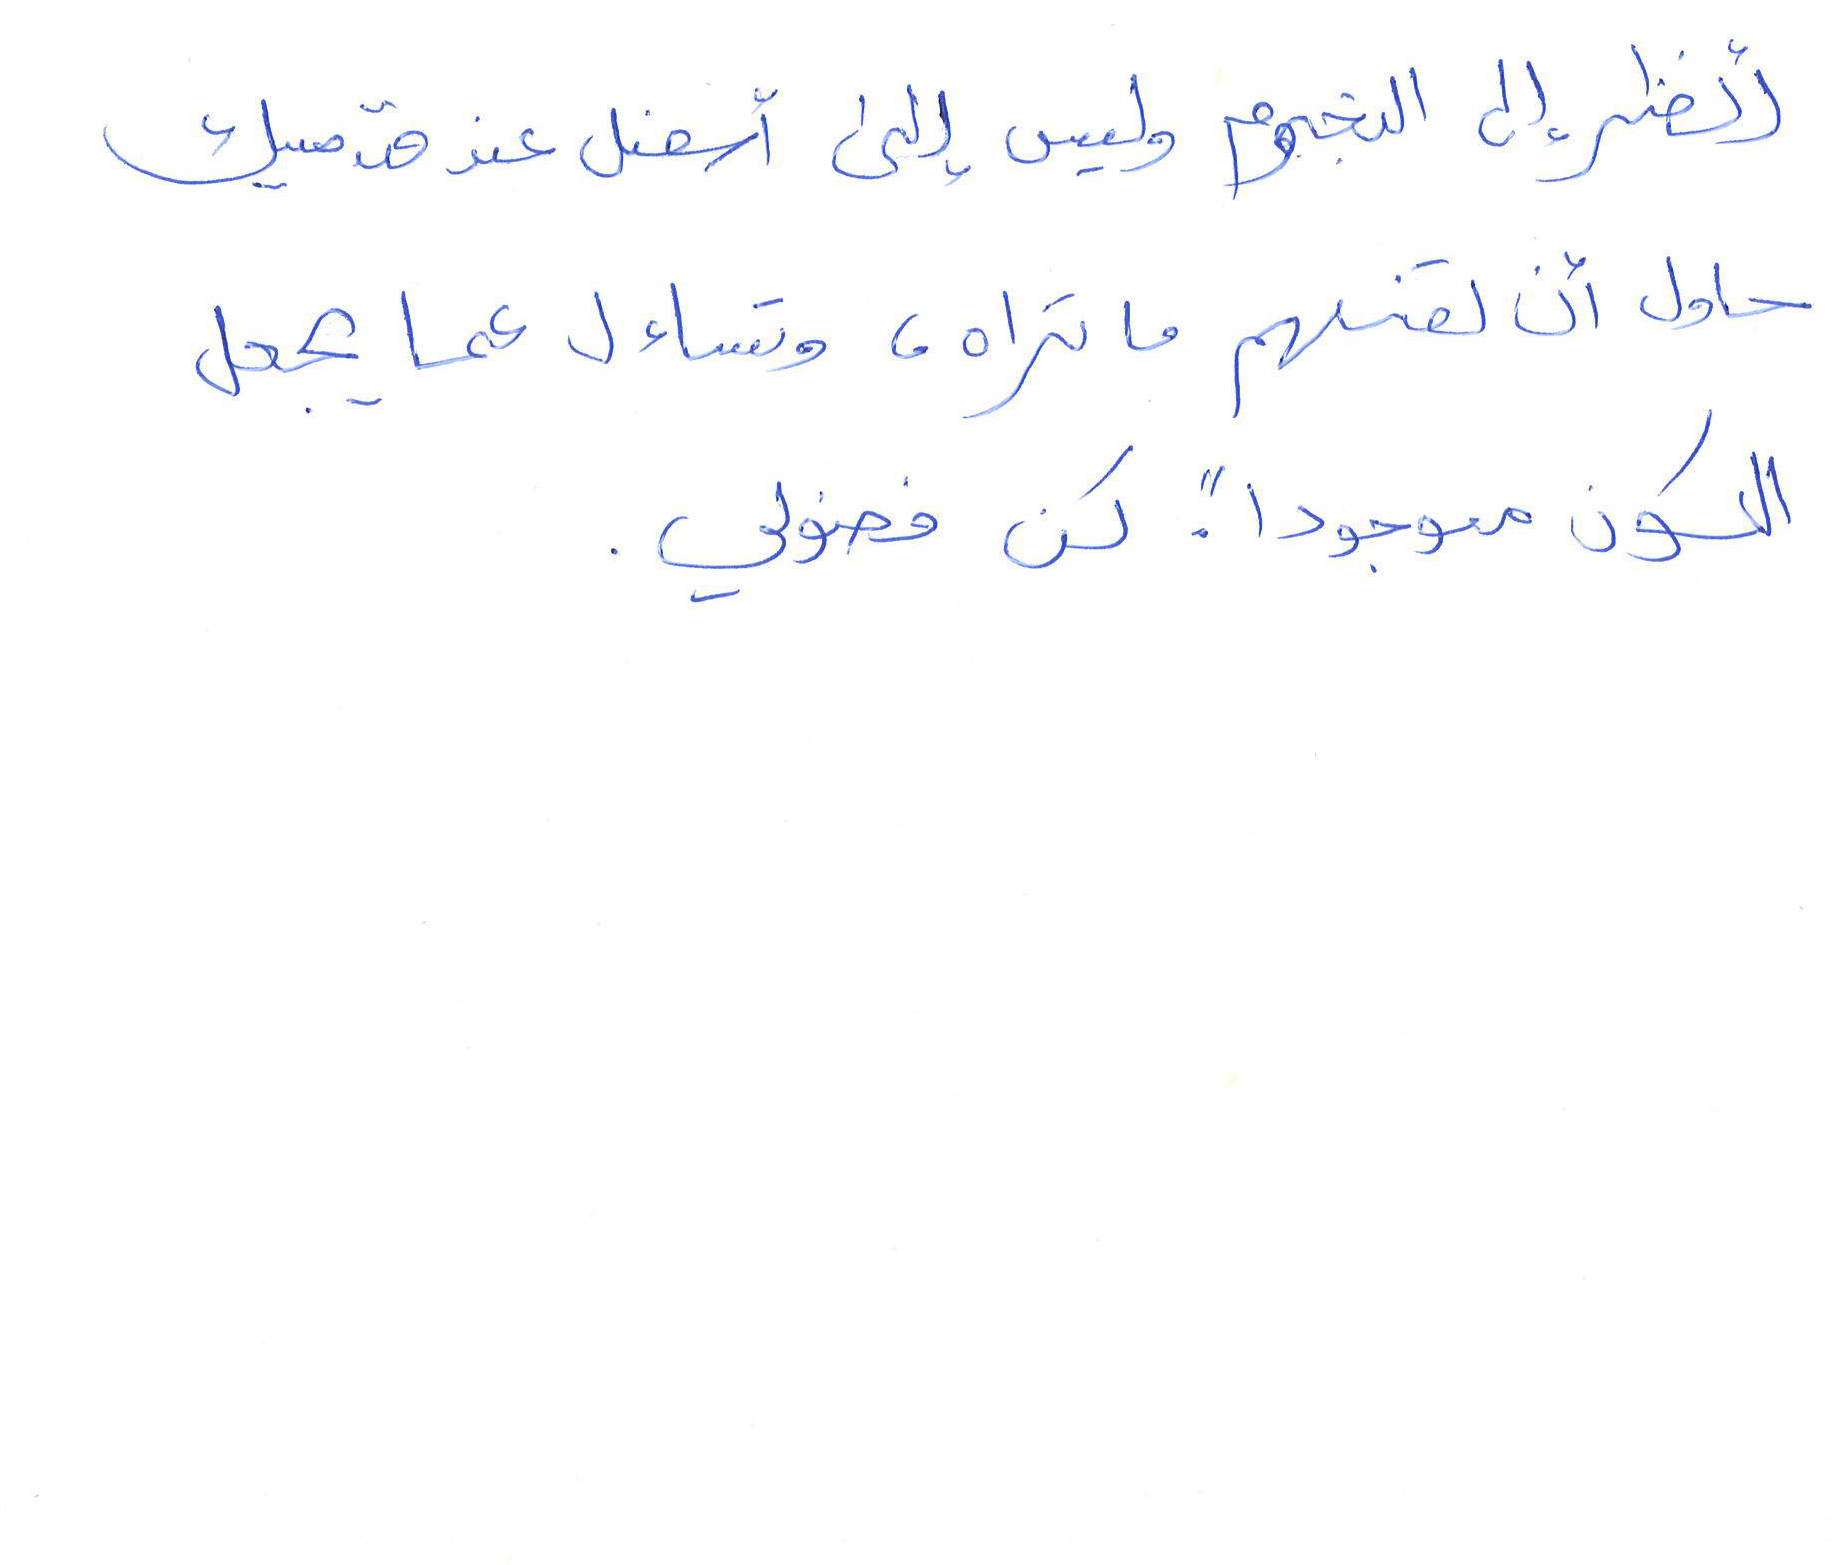 أنظر إلى النجوم وليس إلى أسفل عند قدميك
حاول أن تفهم ما تراه، وتساءل عما يجعل
الكون موجودا". كن فضولي.